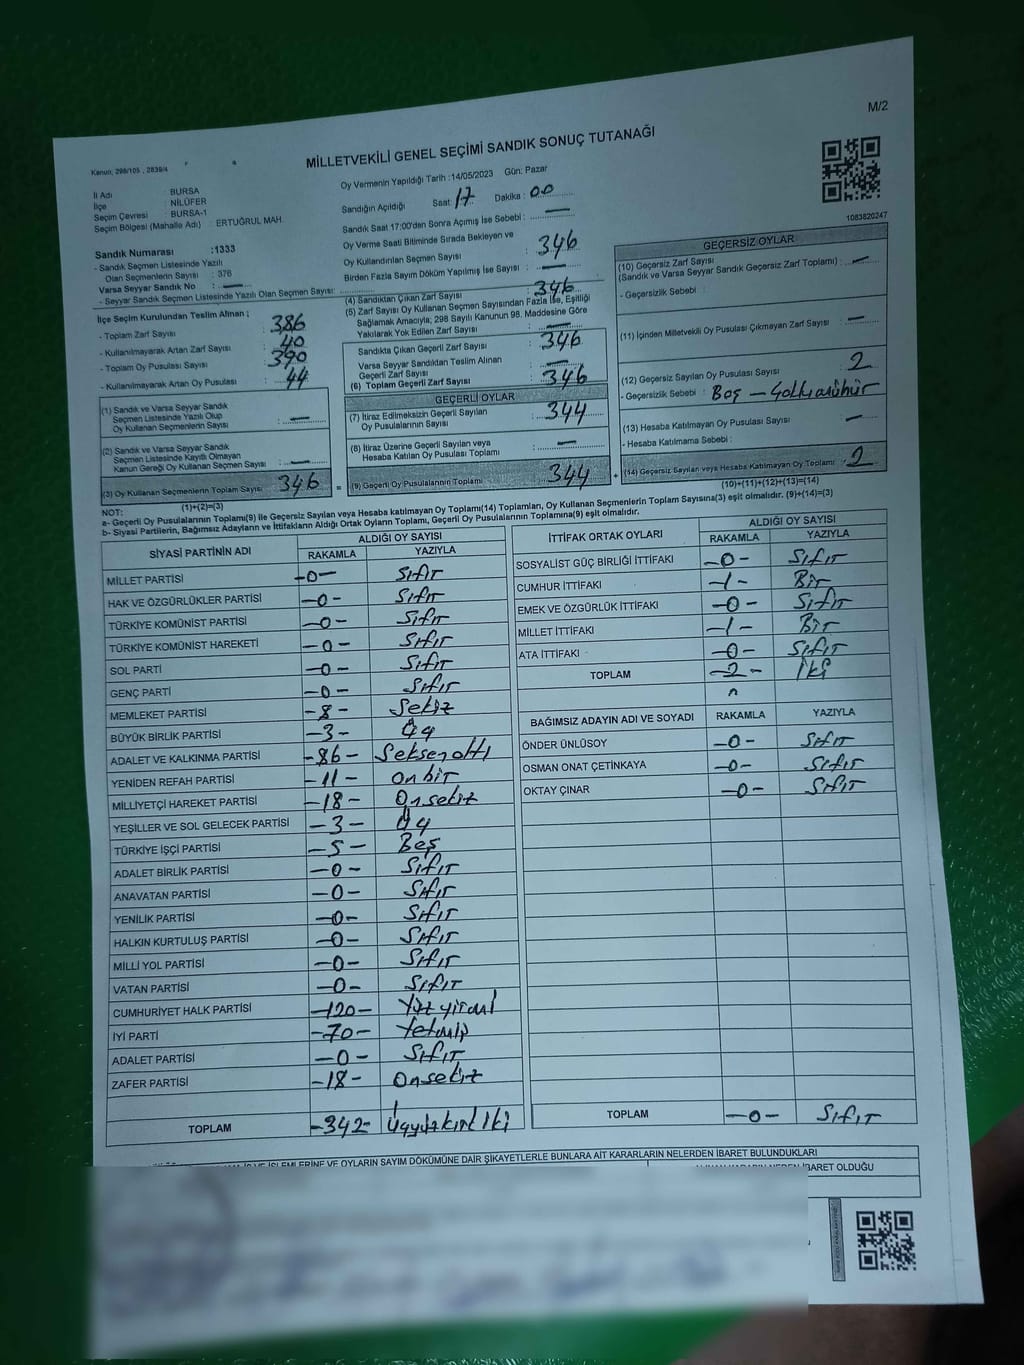 M/2
Kanun, 298/105 , 2839/4
MİLLETVEKİLİ GENEL SEÇİMİ SANDIK SONUÇ TUTANAĞI
İl Adı : BURSA
İlçe : NİLÜFER
Seçim Çevresi : BURSA-1
Seçim Bölgesi (Mahalle Adı) : ERTUĞRUL MAH
Sandık Numarası :1333
- Sandık Seçmen Listesinde Yazılı
Olan Seçmenlerin Sayısı : 376
Varsa Seyyar Sandık No : —
- Seyyar Sandık Seçmen Listesinde Yazılı Olan Seçmen Sayısı:
İlçe Seçim Kurulundan Teslim Alınan ;
- Toplam Zarf Sayısı : 386
- Kullanılmayarak Artan Zarf Sayısı : 40
- Toplam Oy Pusulası Sayısı : 390
- Kullanılmayarak Artan Oy Pusulası : 44
(1) Sandık ve Varsa Seyyar Sandık
Seçmen Listesinde Yazılı Olup
Oy Kullanan Seçmenlerin Sayısı : —
(2) Sandık ve Varsa Seyyar Sandık
Seçmen Listesinde Kayıtlı Olmayan
Kanun Gereği Oy Kullanan Seçmen Sayısı : —
(3) Oy Kullanan Seçmenlerin Toplam Sayısı : 346
(1)+(2)=(3)
Oy Vermenin Yapıldığı Tarih :14/05/2023 Gün: Pazar
Sandığın Açıldığı Saat : 17 Dakika : 00
Sandık Saat 17:00'den Sonra Açımış İse Sebebi : —
Oy Verme Saati Bitiminde Sırada Bekleyen ve
Oy Kullandırılan Seçmen Sayısı : 346
Birden Fazla Sayım Döküm Yapılmış İse Sayısı : —
(4) Sandıktan Çıkan Zarf Sayısı : 346
(5) Zarf Sayısı Oy Kullanan Seçmen Sayısından Fazla İse, Eşitliği
Sağlamak Amacıyla; 298 Sayılı Kanunun 98. Maddesine Göre
Yakılarak Yok Edilen Zarf Sayısı : —
Sandıkta Çıkan Geçerli Zarf Sayısı : 346
Varsa Seyyar Sandıktan Teslim Alınan
Geçerli Zarf Sayısı : —
(6) Toplam Geçerli Zarf Sayısı : 346
GEÇERLİ OYLAR
(7) İtiraz Edilmeksizin Geçerli Sayılan
Oy Pusulalarının Sayısı : 344
(8) İtiraz Üzerine Geçerli Sayılan veya
Hesaba Katılan Oy Pusulası Toplamı : —
= (9) Geçerli Oy Pusulalarının Toplamı : 344 +
1083820247
GEÇERSİZ OYLAR
(10) Geçersiz Zarf Sayısı
(Sandık ve Varsa Seyyar Sandık Geçersiz Zarf Toplamı) : —
- Geçersizlik Sebebi :
(11) İçinden Milletvekili Oy Pusulası Çıkmayan Zarf Sayısı : —
(12) Geçersiz Sayılan Oy Pusulası Sayısı : 2
- Geçersizlik Sebebi : Boş —
(13) Hesaba Katılmayan Oy Pusulası Sayısı : —
- Hesaba Katılmama Sebebi :
(14) Geçersiz Sayılan veya Hesaba Katılmayan Oy Toplamı : 2
(10)+(11)+(12)+(13)=(14)
NOT:
a- Geçerli Oy Pusulalarının Toplamı(9) ile Geçersiz Sayılan veya Hesaba Katılmayan Oy Toplamı(14) Toplamları, Oy Kullanan Seçmenlerin Toplam Sayısına(3) eşit olmalıdır. (9)+(14)=(3)
b- Siyasi Partilerin, Bağımsız Adayların ve İttifakların Aldığı Ortak Oyların Toplamı, Geçerli Oy Pusulalarının Toplamına(9) eşit olmalıdır.
SİYASİ PARTİNİN ADI ALDIĞI OY SAYISI
RAKAMLA YAZIYLA
MİLLET PARTİSİ -0- Sıfır
HAK VE ÖZGÜRLÜKLER PARTİSİ -0- Sıfır
TÜRKİYE KOMÜNİST PARTİSİ -0- Sıfır
TÜRKİYE KOMÜNİST HAREKETİ -0- Sıfır
SOL PARTİ -0- Sıfır
GENÇ PARTİ -0- Sıfır
MEMLEKET PARTİSİ -8- Sekiz
BÜYÜK BİRLİK PARTİSİ -3- Üç
ADALET VE KALKINMA PARTİSİ -86- Seksenaltı
YENİDEN REFAH PARTİSİ -11- Onbir
MİLLİYETÇİ HAREKET PARTİSİ -18- Onsekiz
YEŞİLLER VE SOL GELECEK PARTİSİ -3- Üç
TÜRKİYE İŞÇİ PARTİSİ -5- Beş
ADALET BİRLİK PARTİSİ -0- Sıfır
ANAVATAN PARTİSİ -0- Sıfır
YENİLİK PARTİSİ -0- Sıfır
HALKIN KURTULUŞ PARTİSİ -0- Sıfır
MİLLİ YOL PARTİSİ -0- Sıfır
VATAN PARTİSİ -0- Sıfır
CUMHURİYET HALK PARTİSİ -120- Yüzyirmi
İYİ PARTİ -70- Yetmiş
ADALET PARTİSİ -0- Sıfır
ZAFER PARTİSİ -18- Onsekiz
TOPLAM -342- Üçyüzkırkiki
İTTİFAK ORTAK OYLARI ALDIĞI OY SAYISI
RAKAMLA YAZIYLA
SOSYALİST GÜÇ BİRLİĞİ İTTİFAKI -0- Sıfır
CUMHUR İTTİFAKI -1- Bir
EMEK VE ÖZGÜRLÜK İTTİFAKI -0- Sıfır
MİLLET İTTİFAKI -1- Bir
ATA İTTİFAKI -0- Sıfır
TOPLAM -2- İki
BAĞIMSIZ ADAYIN ADI VE SOYADI RAKAMLA YAZIYLA
ÖNDER ÜNLÜSOY -0- Sıfır
OSMAN ONAT ÇETİNKAYA -0- Sıfır
OKTAY ÇINAR -0- Sıfır
TOPLAM -0- Sıfır
İŞLEMLERİNE VE OYLARIN SAYIM DÖKÜMÜNE DAİR ŞİKAYETLERLE BUNLARA AİT KARARLARIN NELERDEN İBARET BULUNDUKLARI
İBARET OLDUĞU